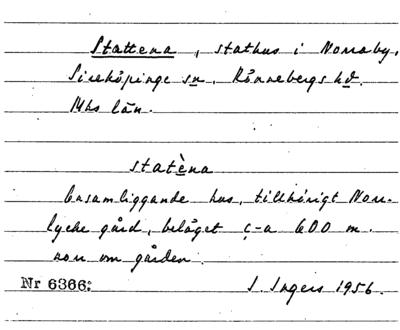 Stattena, stathus i Norraby,
Sireköpinge sn, Rönnebergs hd.
Mhs län.
statèna
Ensamliggande hus, tillhörigt Norr-
lycke gård, beläget c-a 600 m.
norr om gården.
Nr 6366: I. Ingers 1956.